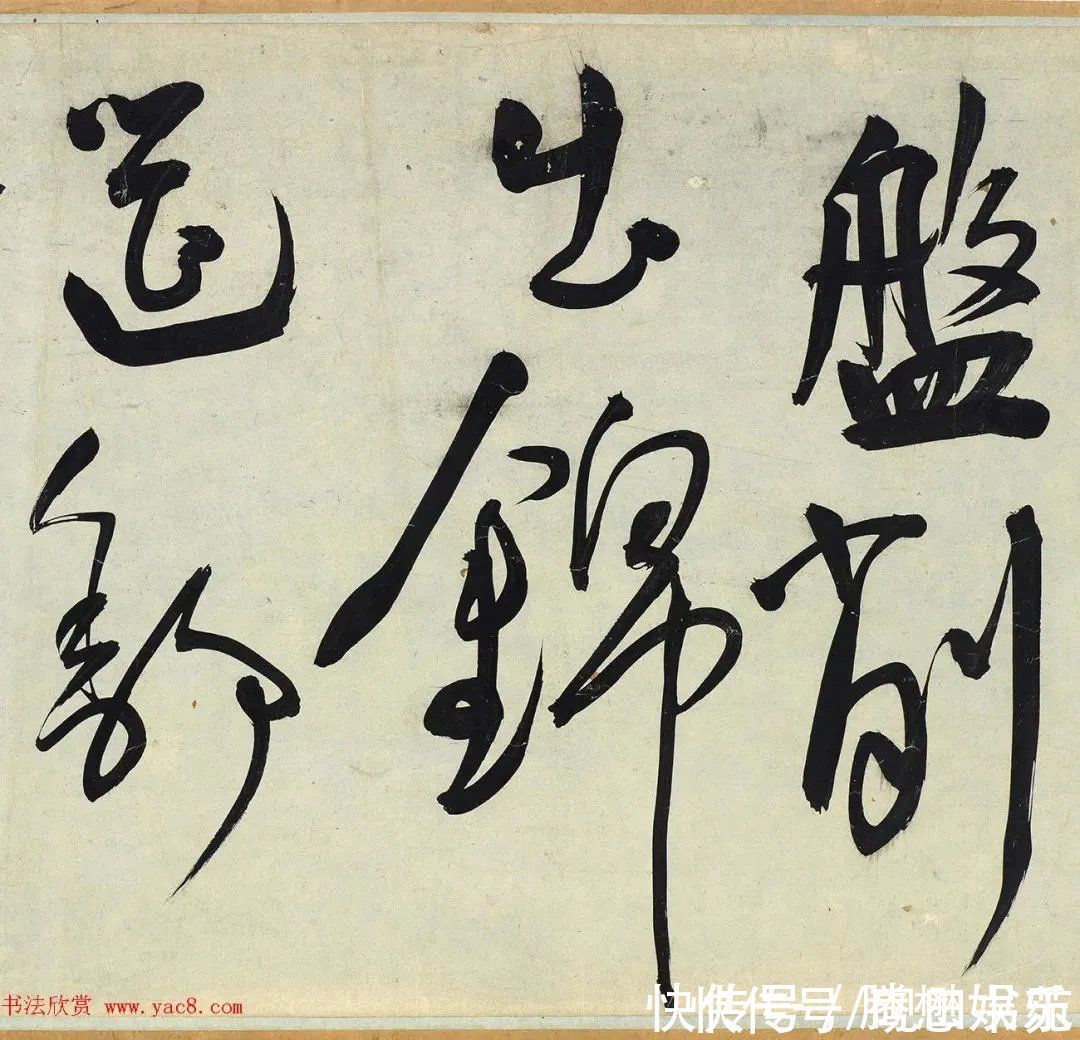 盤削
出錦
還舒
书法欣赏 www.yac8.com
快传号/